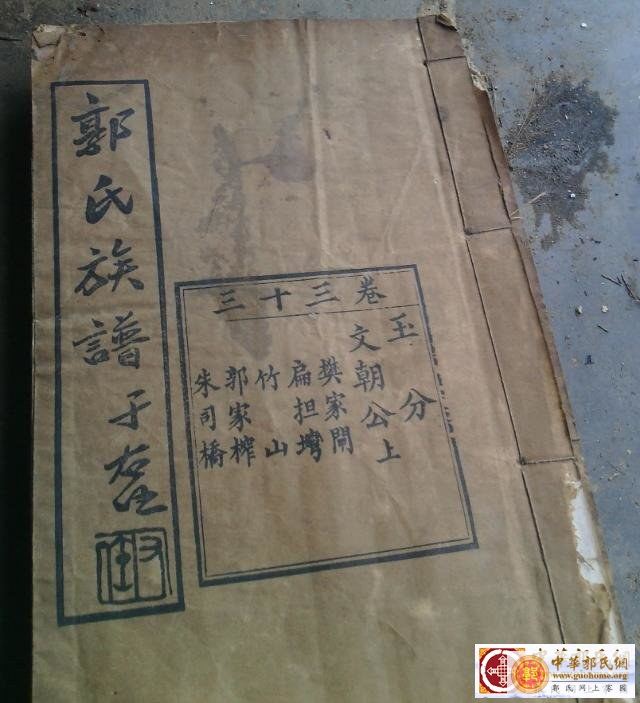 郭氏族譜
卷三十三
玉分
文朝公上
樊家開
扁担灣
竹山
郭家榨
朱司橋
中華郭氏網
www.guohome.org
郭氏网上家園